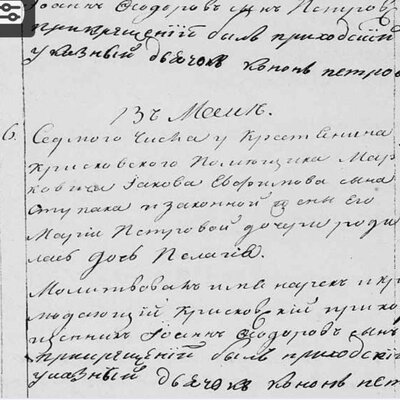 Іоаннъ Ѳеодоровъ сынъ Петров
При крещеніи былъ приходскій
указный дьячокъ Кононъ Петро
Въ Маіи.
6. Седмого числа у крестенина
Крисковского помещика Мар
ковича Іакова Евфимова сына
Ступака и законной жены его
Маріи Петровой дочери роди
лась дочь Пелагія.
Молитвовалъ имя нарекъ и кр
Крисковскій прихо
Іоаннъ Ѳеодоровъ сынъ
При крещеніи былъ приходскі
указный дьячокъ Кононъ пет